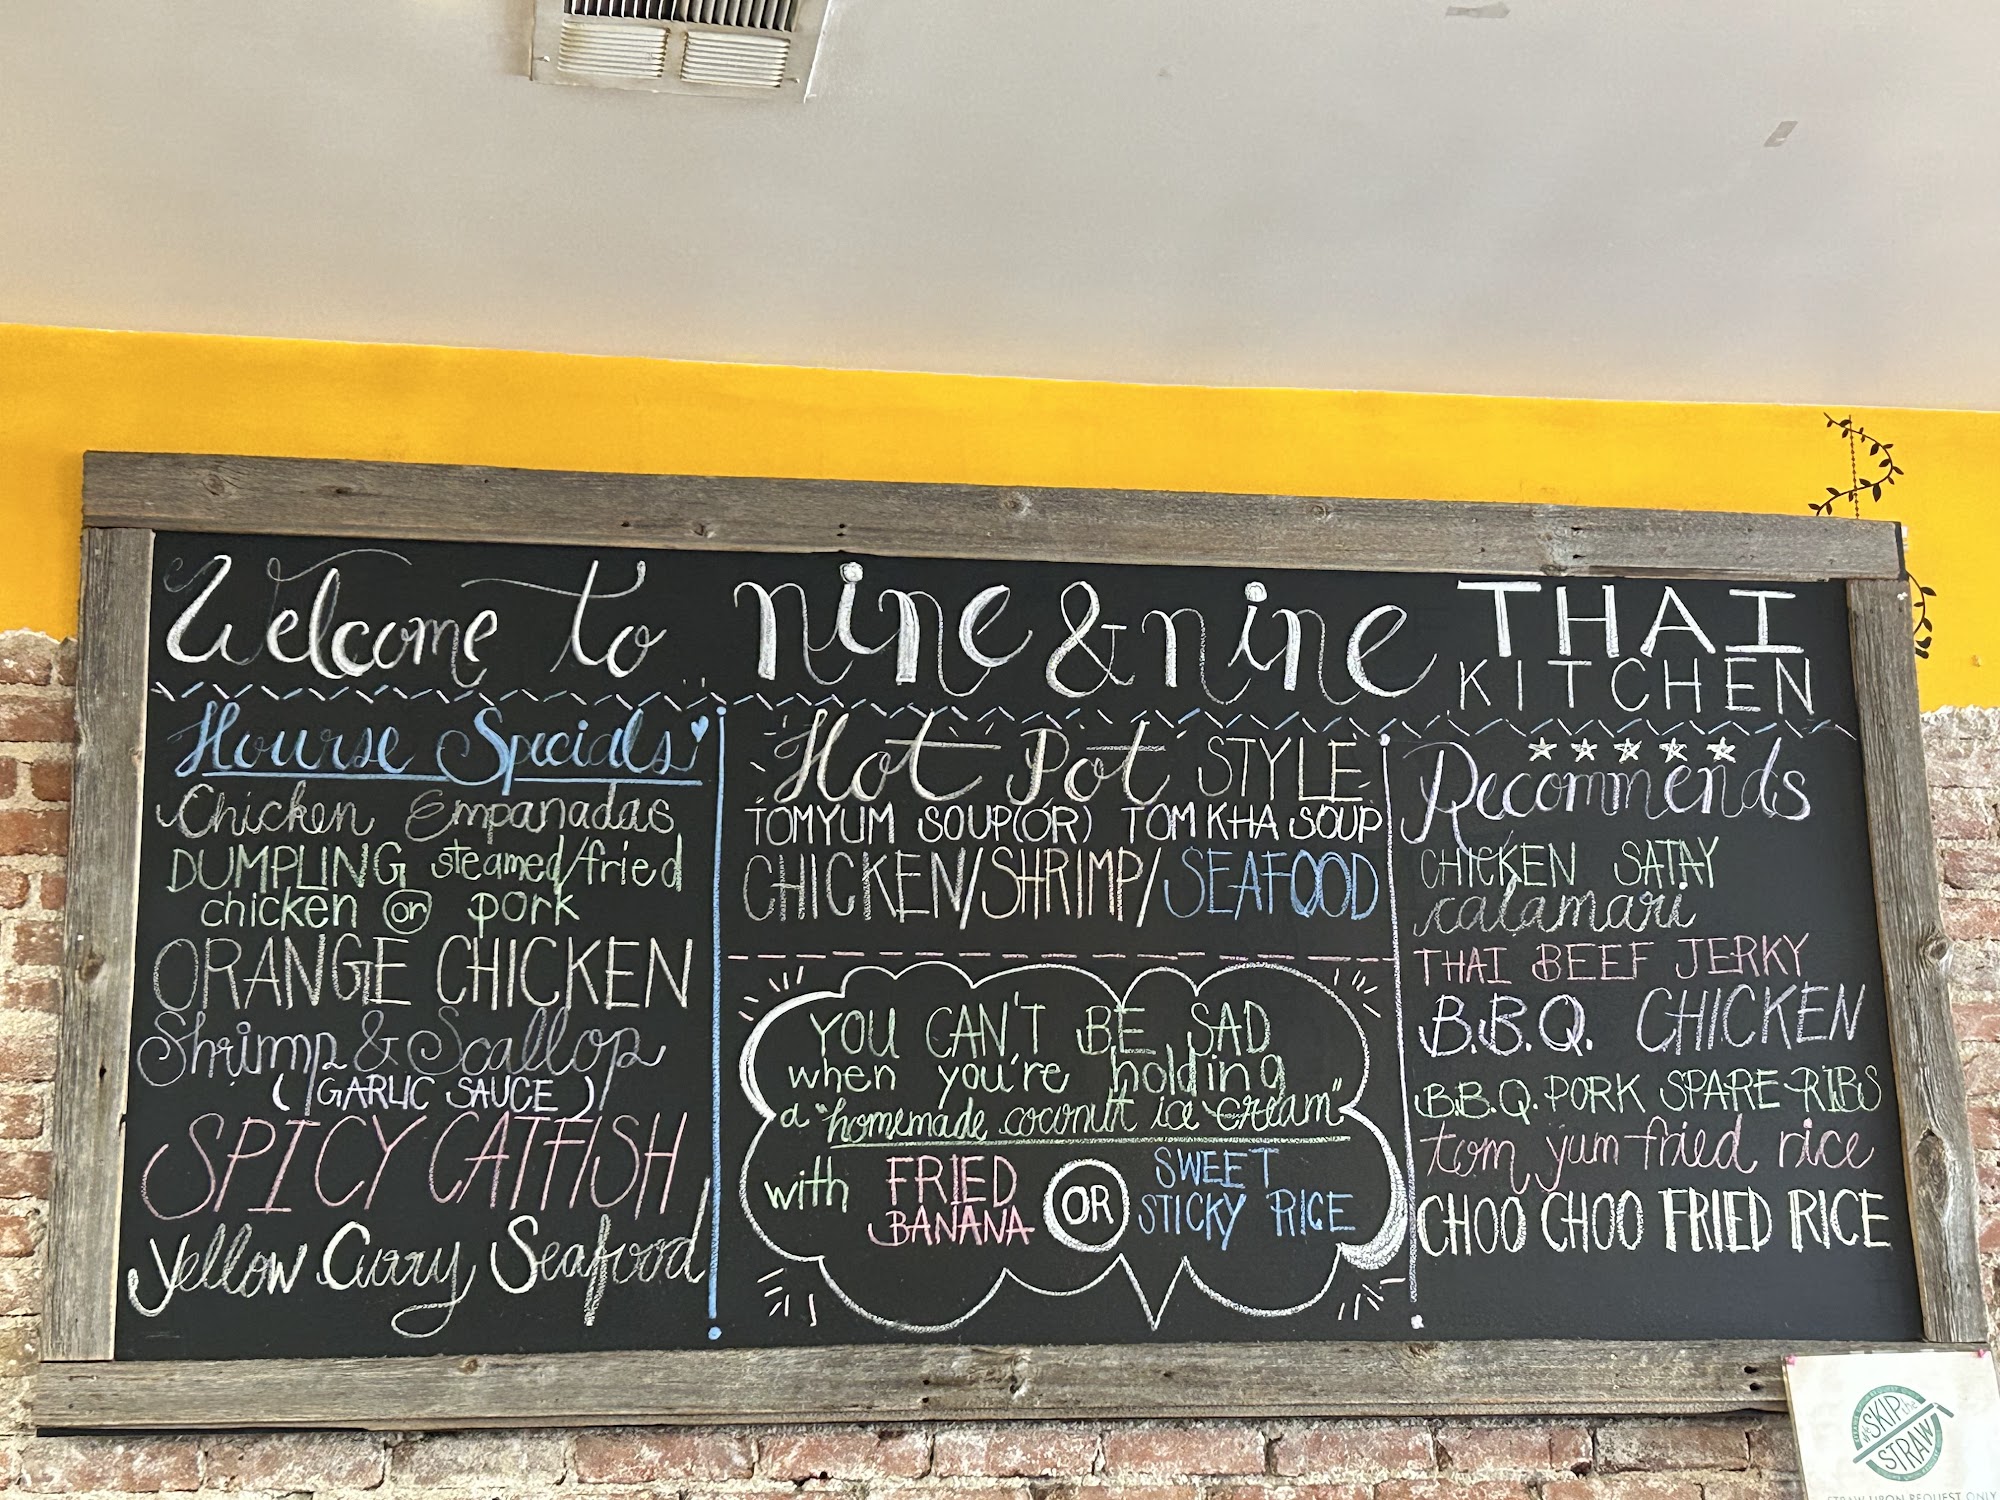 Welcome to nine & nine THAI
KITCHEN
Hourse Specials
Chicken Empanadas
DUMPLING steamed/fried
chicken or pork
ORANGE CHICKEN
Shrimp & Scallop
(GARLIC SAUCE)
SPICY CATFISH
Yellow Curry Seafood
Hot Pot STYLE
TOMYUM SOUP(OR) TOM KHA SOUP
CHICKEN/SHRIMP/SEAFOOD
YOU CAN'T BE SAD
when you're holding
a "homemade coconut ice cream"
with FRIED BANANA OR SWEET STICKY RICE
Recommends
CHICKEN SATAY
calamari
THAI BEEF JERKY
B.B.Q. CHICKEN
B.B.Q. PORK SPARE-RIBS
tom yum fried rice
CHOO CHOO FRIED RICE
SKIP the
STRAW
STRAW UPON REQUEST ONLY